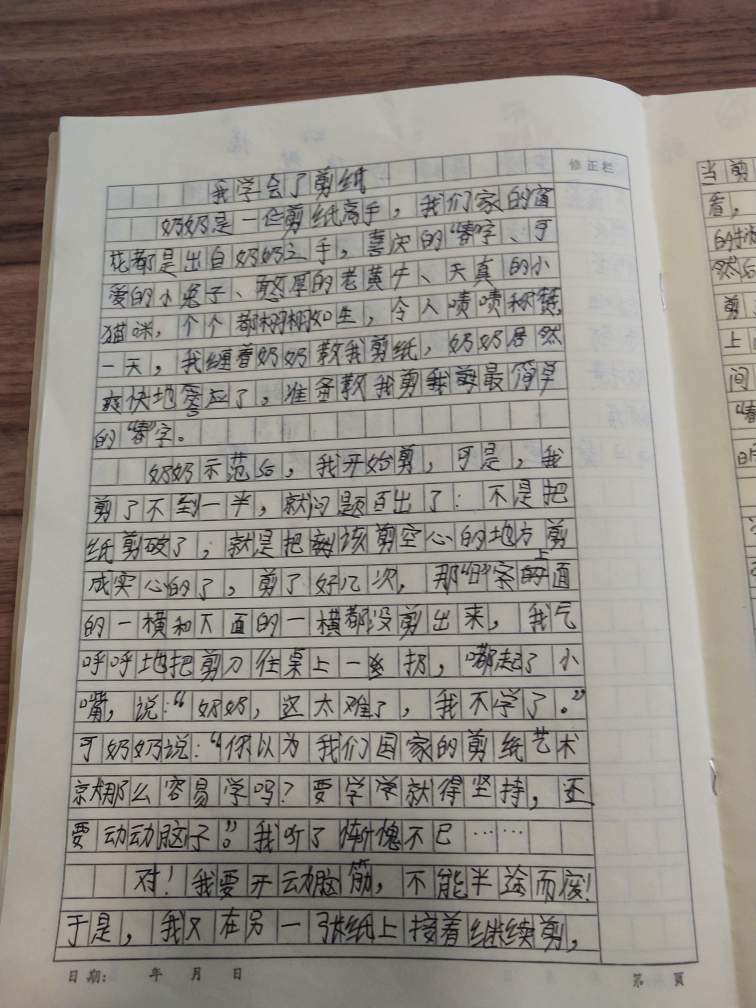 修正栏
我学会了剪纸
奶奶是一位剪纸高手，我们家的窗
花都是出自奶奶之手，喜庆的“春”字、可
爱的小兔子、憨厚的老黄牛、天真的小
猫咪，个个都栩栩如生，令人啧啧称赞，
一天，我缠着奶奶教我剪纸，奶奶居然
爽快地答应了，准备教我剪我最简单
的“春”字。
奶奶示范后，我开始剪，可是，我
剪了不到一半，就问题百出了：不是把
纸剪破了；就是把该剪空心的地方剪
成实心的了，剪了好几次，那“日”字的上面
的一横和下面的一横都没剪出来，我气
呼呼地把剪刀往桌上一扔，嘟起了小
嘴，说：“奶奶，这太难了，我不学了。”
可奶奶说：“你以为我们国家的剪纸艺术
就那么容易学吗？要学学就得坚持，还
要动动脑子”。我听了惭愧不已……
对！我要开动脑筋，不能半途而废！
于是，我又在另一张纸上接着继续剪，
日期： 年 月 日
第 页
当剪
看，
的
然后
剪
上
间
“春